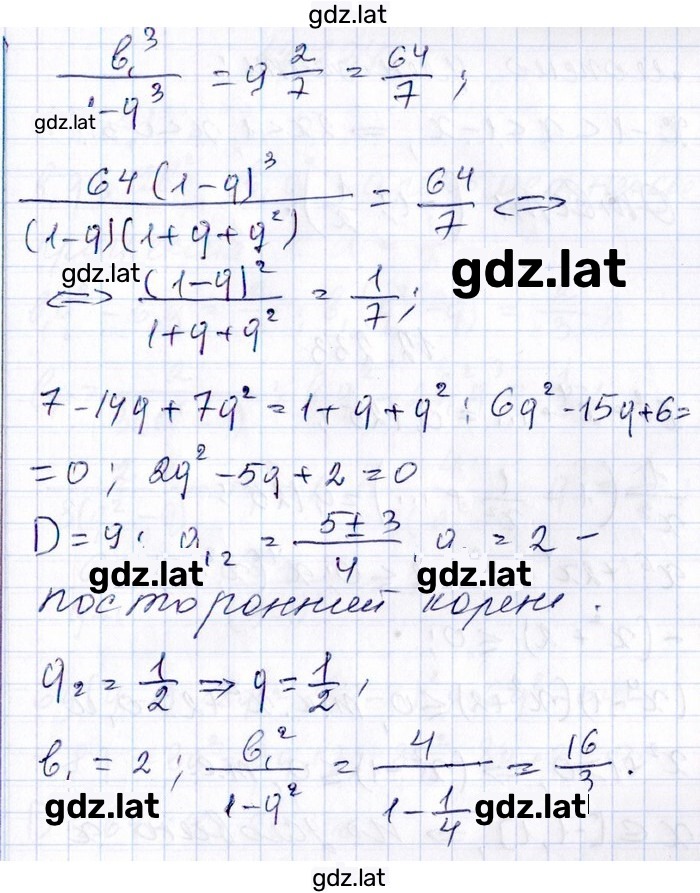 gdz.lat
b₁³/(1-q³) = 9 2/7 = 64/7 ;
gdz.lat
64(1-q)³/((1-q)(1+q+q²)) = 64/7 <=>
gdz.lat
gdz.lat
<=> (1-q)²/(1+q+q²) = 1/7 ;
7-14q+7q²=1+q+q² ; 6q²-15q+6=
=0 ; 2q²-5q+2=0
D=9 ; q₁,₂ = (5±3)/4 , q₁ = 2 -
gdz.lat gdz.lat
посторонний корень .
q₂ = 1/2 => q = 1/2 ,
b₁ = 2 ; b₁²/(1-q²) = 4/(1-1/4) = 16/3 .
gdz.lat gdz.lat
gdz.lat